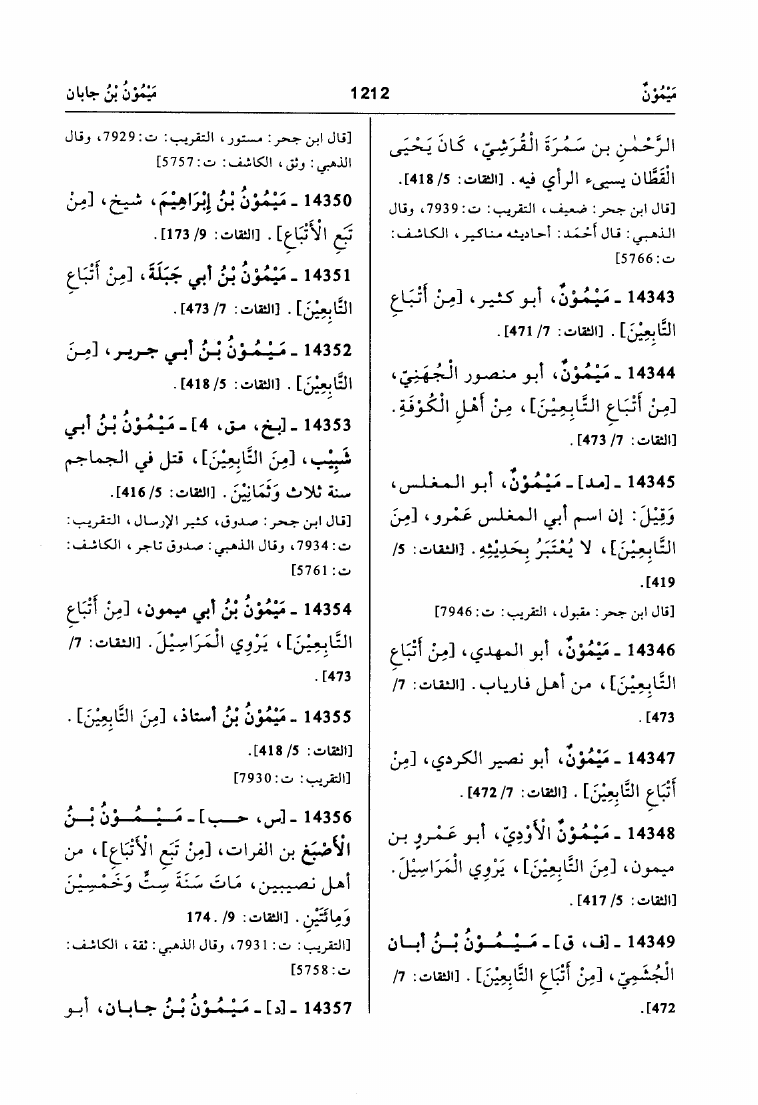 مَيْمُوْنٌ
1212
مَيْمُوْنُ بْنُ جابان
الرَّحْمٰنِ بن سَمُرَةَ الْقُرَشِيّ، كَانَ يَحْيَى
الْقَطَّان يسيء الرأي فيه. [الثقات: 5/ 418].
[قال ابن حجر: ضعيف، التقريب: ت:7939، وقال
الذهبي: قال أَحْمَد: أحاديثه مناكير، الكاشف:
ت:5766]
14343 ـ مَيْمُوْنٌ، أبو كثير، [مِنْ أَتْبَاع
التَّابِعِيْنَ]. [الثقات: 7/ 471].
14344 ـ مَيْمُوْنٌ، أبو منصور الْجُهَنِيّ،
[مِنْ أَتْبَاعِ التَّابِعِيْنَ]، مِنْ أَهْلِ الْكُوْفَةِ.
[الثقات: 7/ 473].
14345 ـ [مد] ـ مَيْمُوْنٌ، أبو المغلس،
وَقِيْلَ: إن اسم أبي المغلس عَمْرو، [مِنَ
التَّابِعِيْنَ]، لا يُعْتَبَرُ بِحَدِيْثِهِ. [الثقات: 5/
419].
[قال ابن حجر: مقبول، التقريب: ت:7946]
14346 ـ مَيْمُوْنٌ، أبو المهدي، [مِنْ أَتْبَاعِ
التَّابِعِيْنَ]، من أهل فارياب. [الثقات: 7/
473].
14347 ـ مَيْمُوْنٌ، أبو نصير الكردي، [مِنْ
أَتْبَاعِ التَّابِعِيْنَ]. [الثقات: 7/ 472].
14348 ـ مَيْمُوْنٌ الأَوْدِيّ، أبو عَمْرو بن
ميمون، [مِنَ التَّابِعِيْنَ]، يَرْوِي الْمَرَاسِيْلَ.
[الثقات: 5/ 417].
14349 ـ [ف، ق] ـ مَيْمُوْنُ بْنُ أبان
الْجُشَمِيّ، [مِنْ أَتْبَاعِ التَّابِعِيْنَ]. [الثقات: 7/
472].
[قال ابن حجر: مستور، التقريب: ت:7929، وقال
الذهبي: وثق، الكاشف: ت:5757]
14350 ـ مَيْمُوْنُ بْنُ إبْرَاهِيْمَ، شيخ، [مِنْ
تَبَعِ الْأَتْبَاعِ]. [الثقات: 9/ 173].
14351 ـ مَيْمُوْنُ بْنُ أبي جَبَلَةَ، [مِنْ أَتْبَاعِ
التَّابِعِيْنَ]. [الثقات: 7/ 473].
14352 ـ مَيْمُوْنُ بْنُ أبي جرير، [مِنَ
التَّابِعِيْنَ]. [الثقات: 5/ 418].
14353 ـ [بخ، مق، 4] ـ مَيْمُوْنُ بْنُ أبي
شَبِيْبٍ، [مِنَ التَّابِعِيْنَ]، قتل في الجماجم
سنة ثلاث وَثَمَانِيْنَ. [الثقات: 5/ 416].
[قال ابن حجر: صدوق، كثير الإرسال، التقريب:
ت:7934، وقال الذهبي: صدوق تاجر، الكاشف:
ت:5761]
14354 ـ مَيْمُوْنُ بْنُ أبي ميمون، [مِنْ أَتْبَاعِ
التَّابِعِيْنَ]، يَرْوِي الْمَرَاسِيْلَ. [الثقات: 7/
473].
14355 ـ مَيْمُوْنُ بْنُ أستاذ، [مِنَ التَّابِعِيْنَ].
[الثقات: 5/ 418].
[التقريب: ت:7930]
14356 ـ [س، حب] ـ مَيْمُوْنُ بْنُ
الْأَصْبَغِ بن الفرات، [مِنْ تَبَعِ الْأَتْبَاعِ]، من
أهل نصيبين، مَاتَ سَنَةَ سِتٍّ وَخَمْسِيْنَ
وَمِائَتَيْنِ. [الثقات: 9/ 174.
[التقريب: ت:7931، وقال الذهبي: ثقة، الكاشف:
ت:5758]
14357 ـ [د] ـ مَيْمُوْنُ بْنُ جابان، أبو